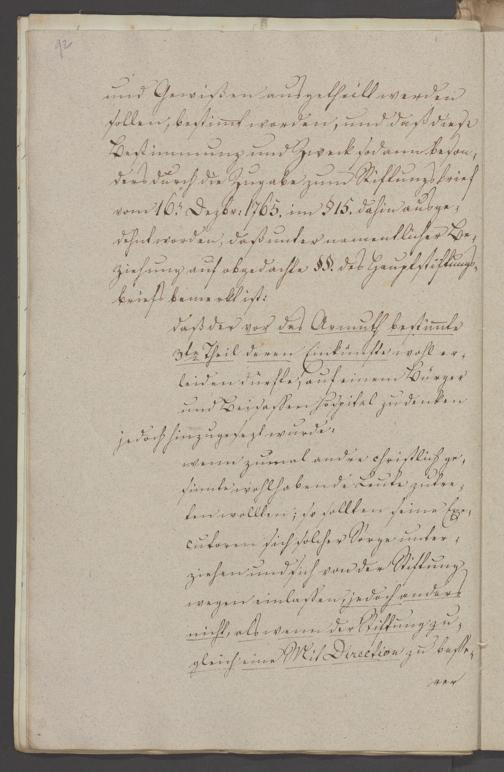 92
und Gewißen ausgetheilt werden
sollen, bestimt worden, und daß diese
Bestimmung und Zweck sodann beson„
ders durch die Zugabe zum Stiftungsbrief
vom 16t. Dezbr: 1765. im §15. dahin ausge„
dehnt worden, daß unter namentlicher Be„
ziehung auf obgedachte §§. des Hauptstiftungs„
briefs bemerkt ist:
daß der vor das Armuth bestimte
3te Theil deren Einkünfte wohl er„
leiden dürfte, auf einem Bürger
und Beisassen Hospital zu denken
jedoch hinzugesezt wurde:
wenn zumal andre christlich ge„
sinnte wohlhabende Leute zutre„
ten wollten; so sollten seine Exe„
cutoren sich solcher Sorge unter„
ziehen und sich von der Stiftung
wegen einlaßen, jedoch anders
nicht, als wenn der Stiftung zu„
gleich eine Mit Direction zu beße„
rer